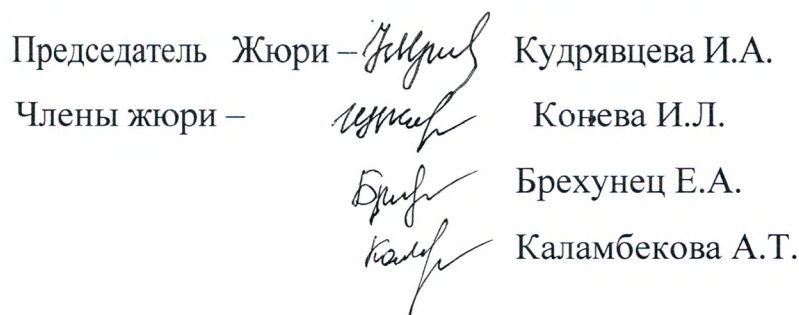 Председатель Жюри – Кудрявцева И.А.
Члены жюри – Конева И.Л.
Брехунец Е.А.
Каламбекова А.Т.